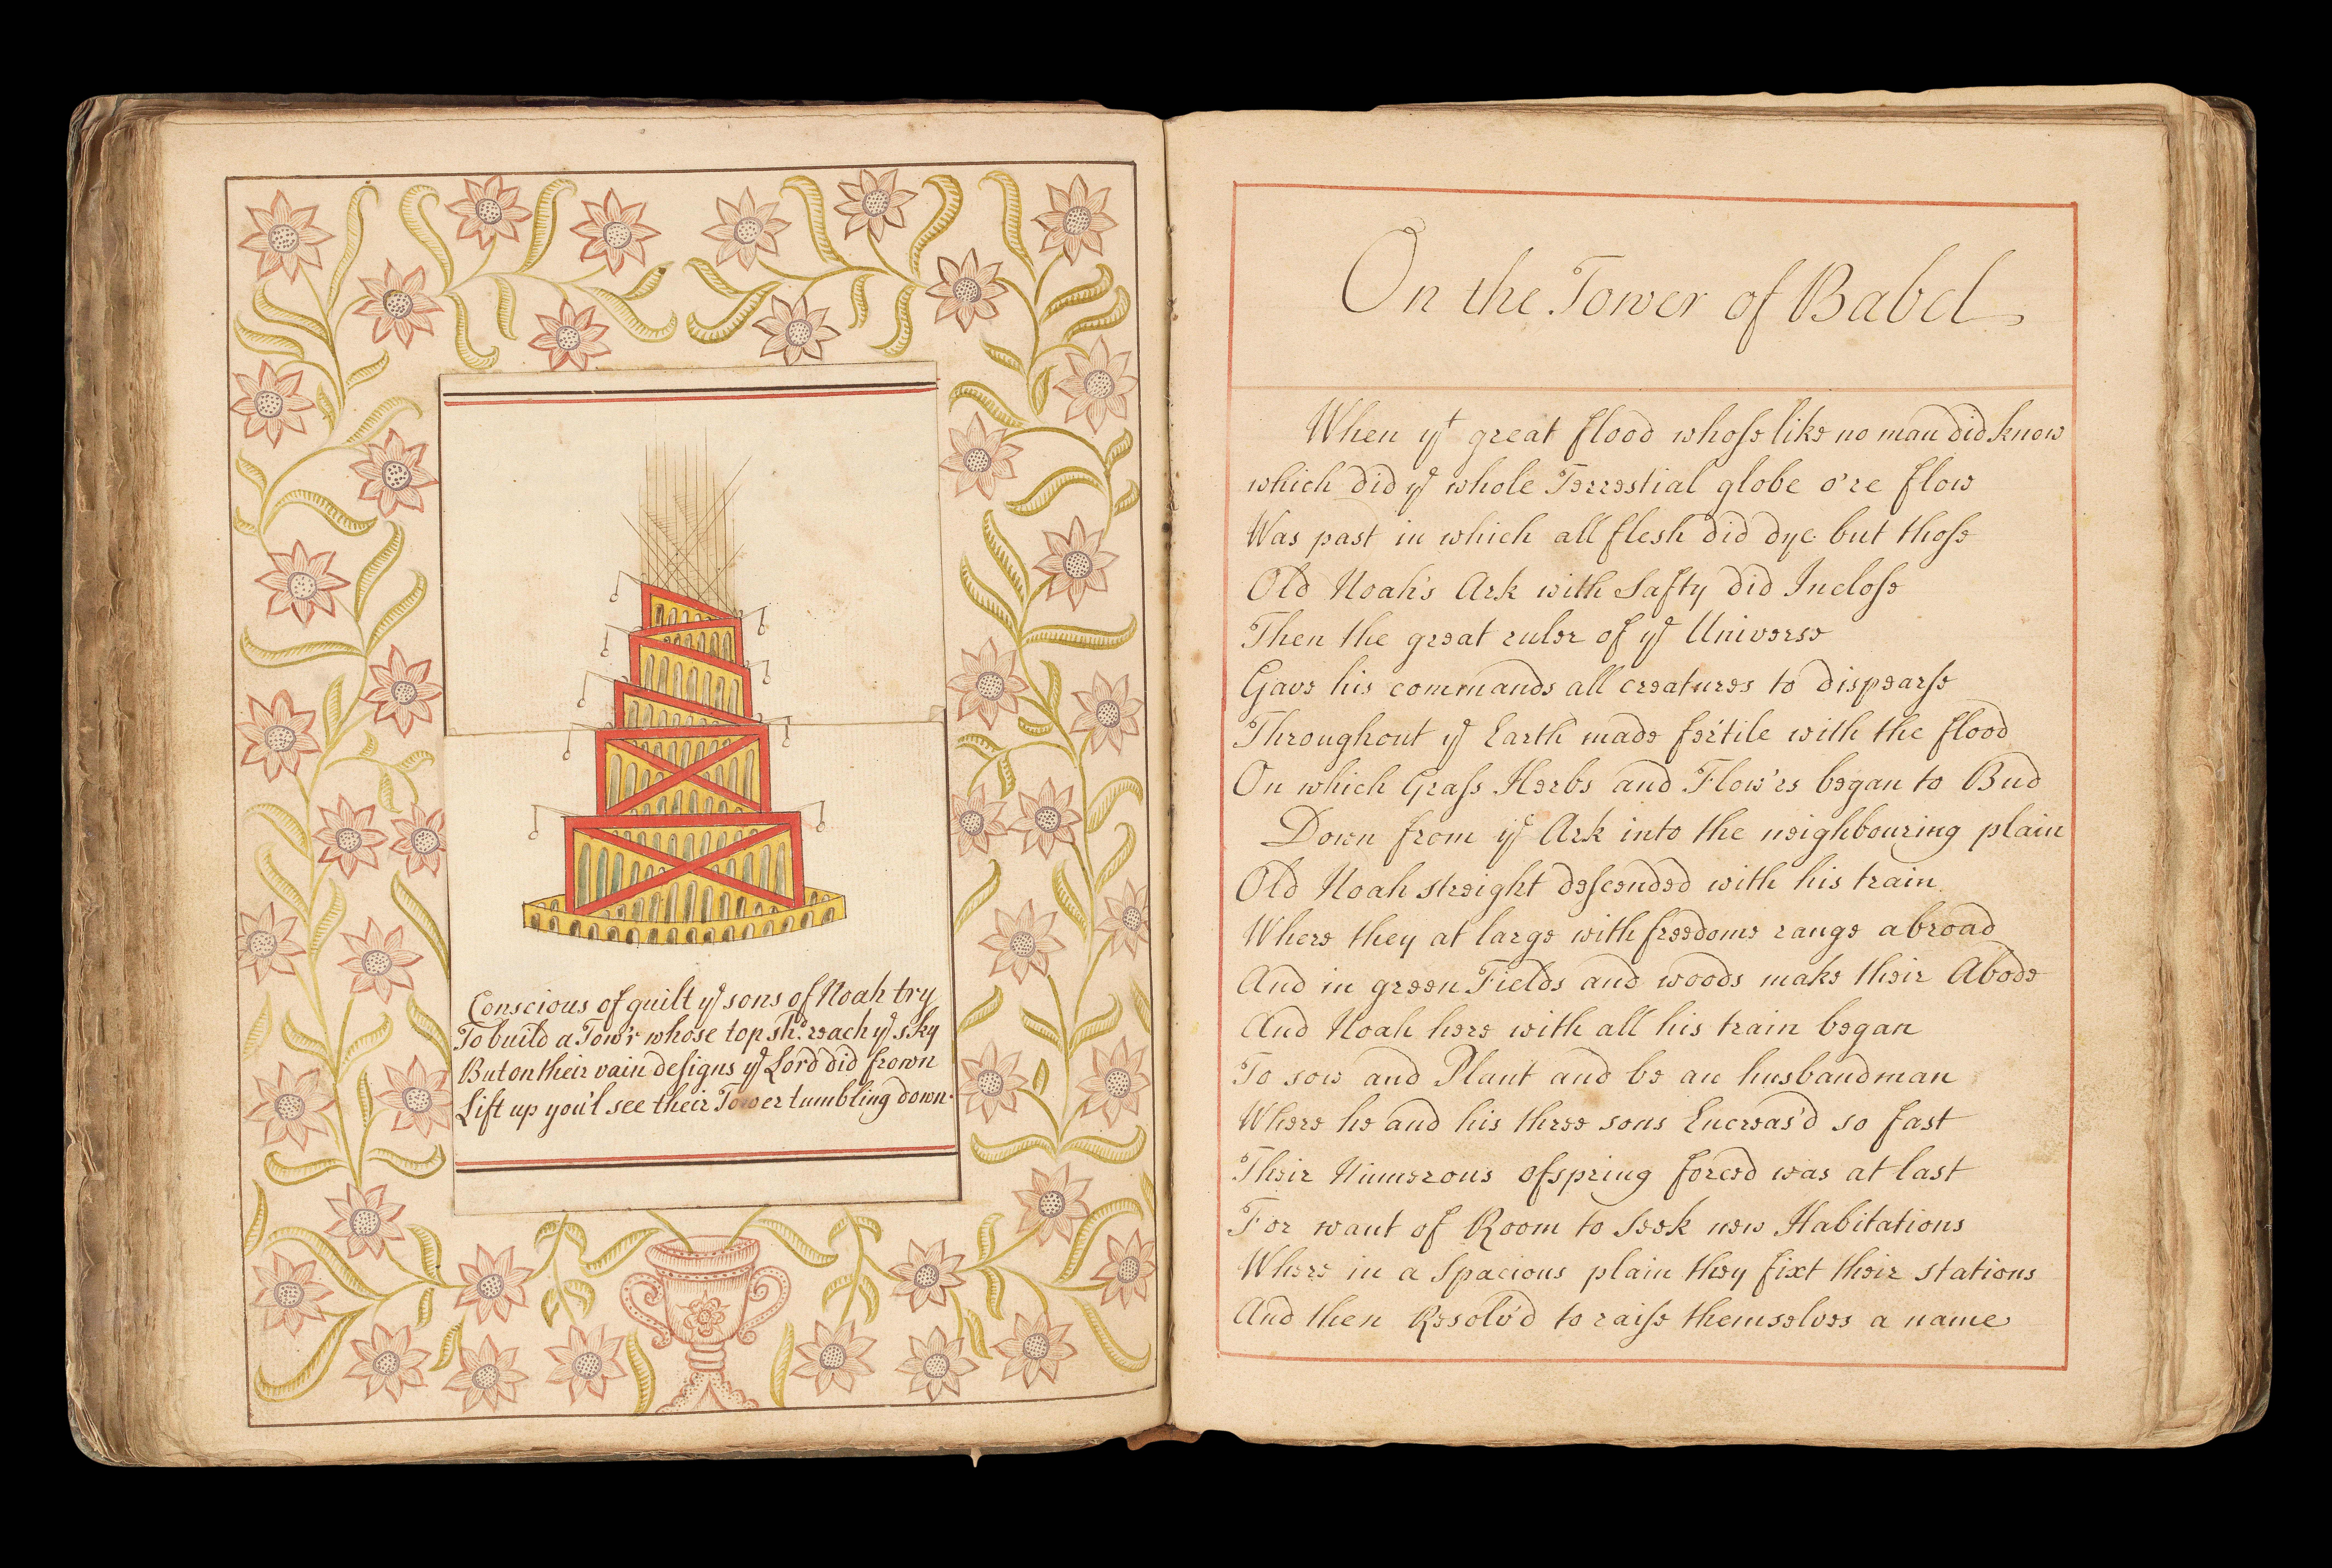 Conscious of guilt yᵉ sons of Noah try
To build a Tow'r whose top shᵈ reach yᵉ sky
But on their vain deſigns yᵉ Lord did frown
Lift up you'l see their Tower tumbling down
On the Tower of Babel
When yᵗ great flood whoſe like no man did know
which did yᵉ whole Terrestial globe o're flow
Was past in which all flesh did dye but thoſe
Old Noah's Ark with Safty did Incloſe
Then the great ruler of yᵉ Universe
Gave his commands all creatures to dispearſe
Throughout yᵉ Earth made fertile with the flood
On which Graſs Herbs and Flow'rs began to Bud
Down from yᵉ Ark into the neighbouring plain
Old Noah streight deſcended with his train
Where they at large with freedoms range abroad
And in green Fields and woods make their Abode
And Noah here with all his train began
To sow and Plant and be an husbandman
Where he and his three sons Encreas'd so fast
Their Numerous ofspring forced was at last
For want of Room to Seek new Habitations
Where in a Spacious plain they fixt their stations
And then Resolv'd to raiſe themselves a name